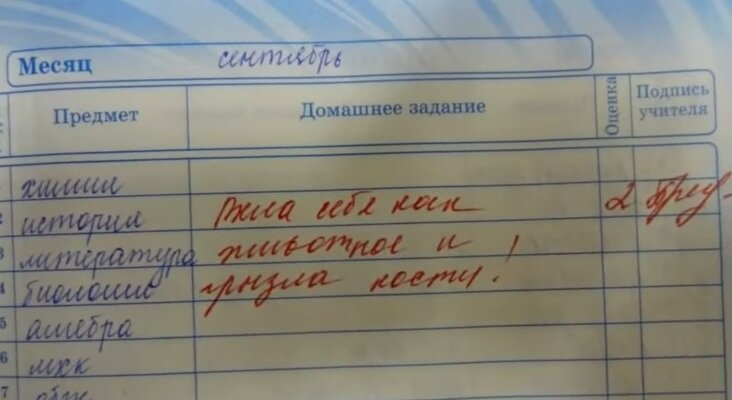 Месяц сентябрь
Предмет Домашнее задание Оценка Подпись учителя
1 химия
2 история Вела себя как 2
3 литература животное и
4 биология грызла кости!
5 алгебра
6 мхк
7